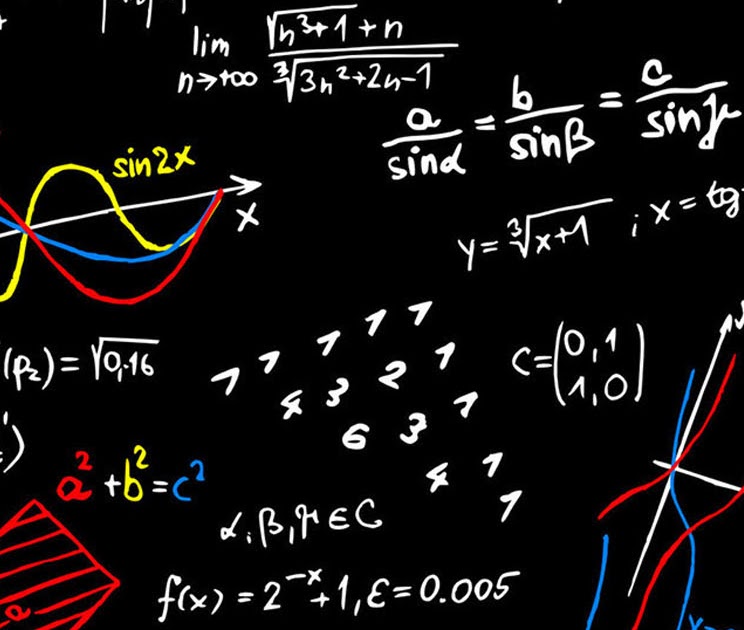 lim n→+∞ (√(n³+1) + n) / ∛(3n²+2n-1)
a/sinα = b/sinβ = c/sinγ
sin2x
x
y = ∛(x+1) ; x = tg
(p₂) = √0,16
1 1 1 1 1
4 3 2 1
6 3 1
4 1
1
C = (0,1
1,0)
a² + b² = c²
α, β, γ ∈ C
f(x) = 2⁻ˣ + 1, ε = 0.005
a